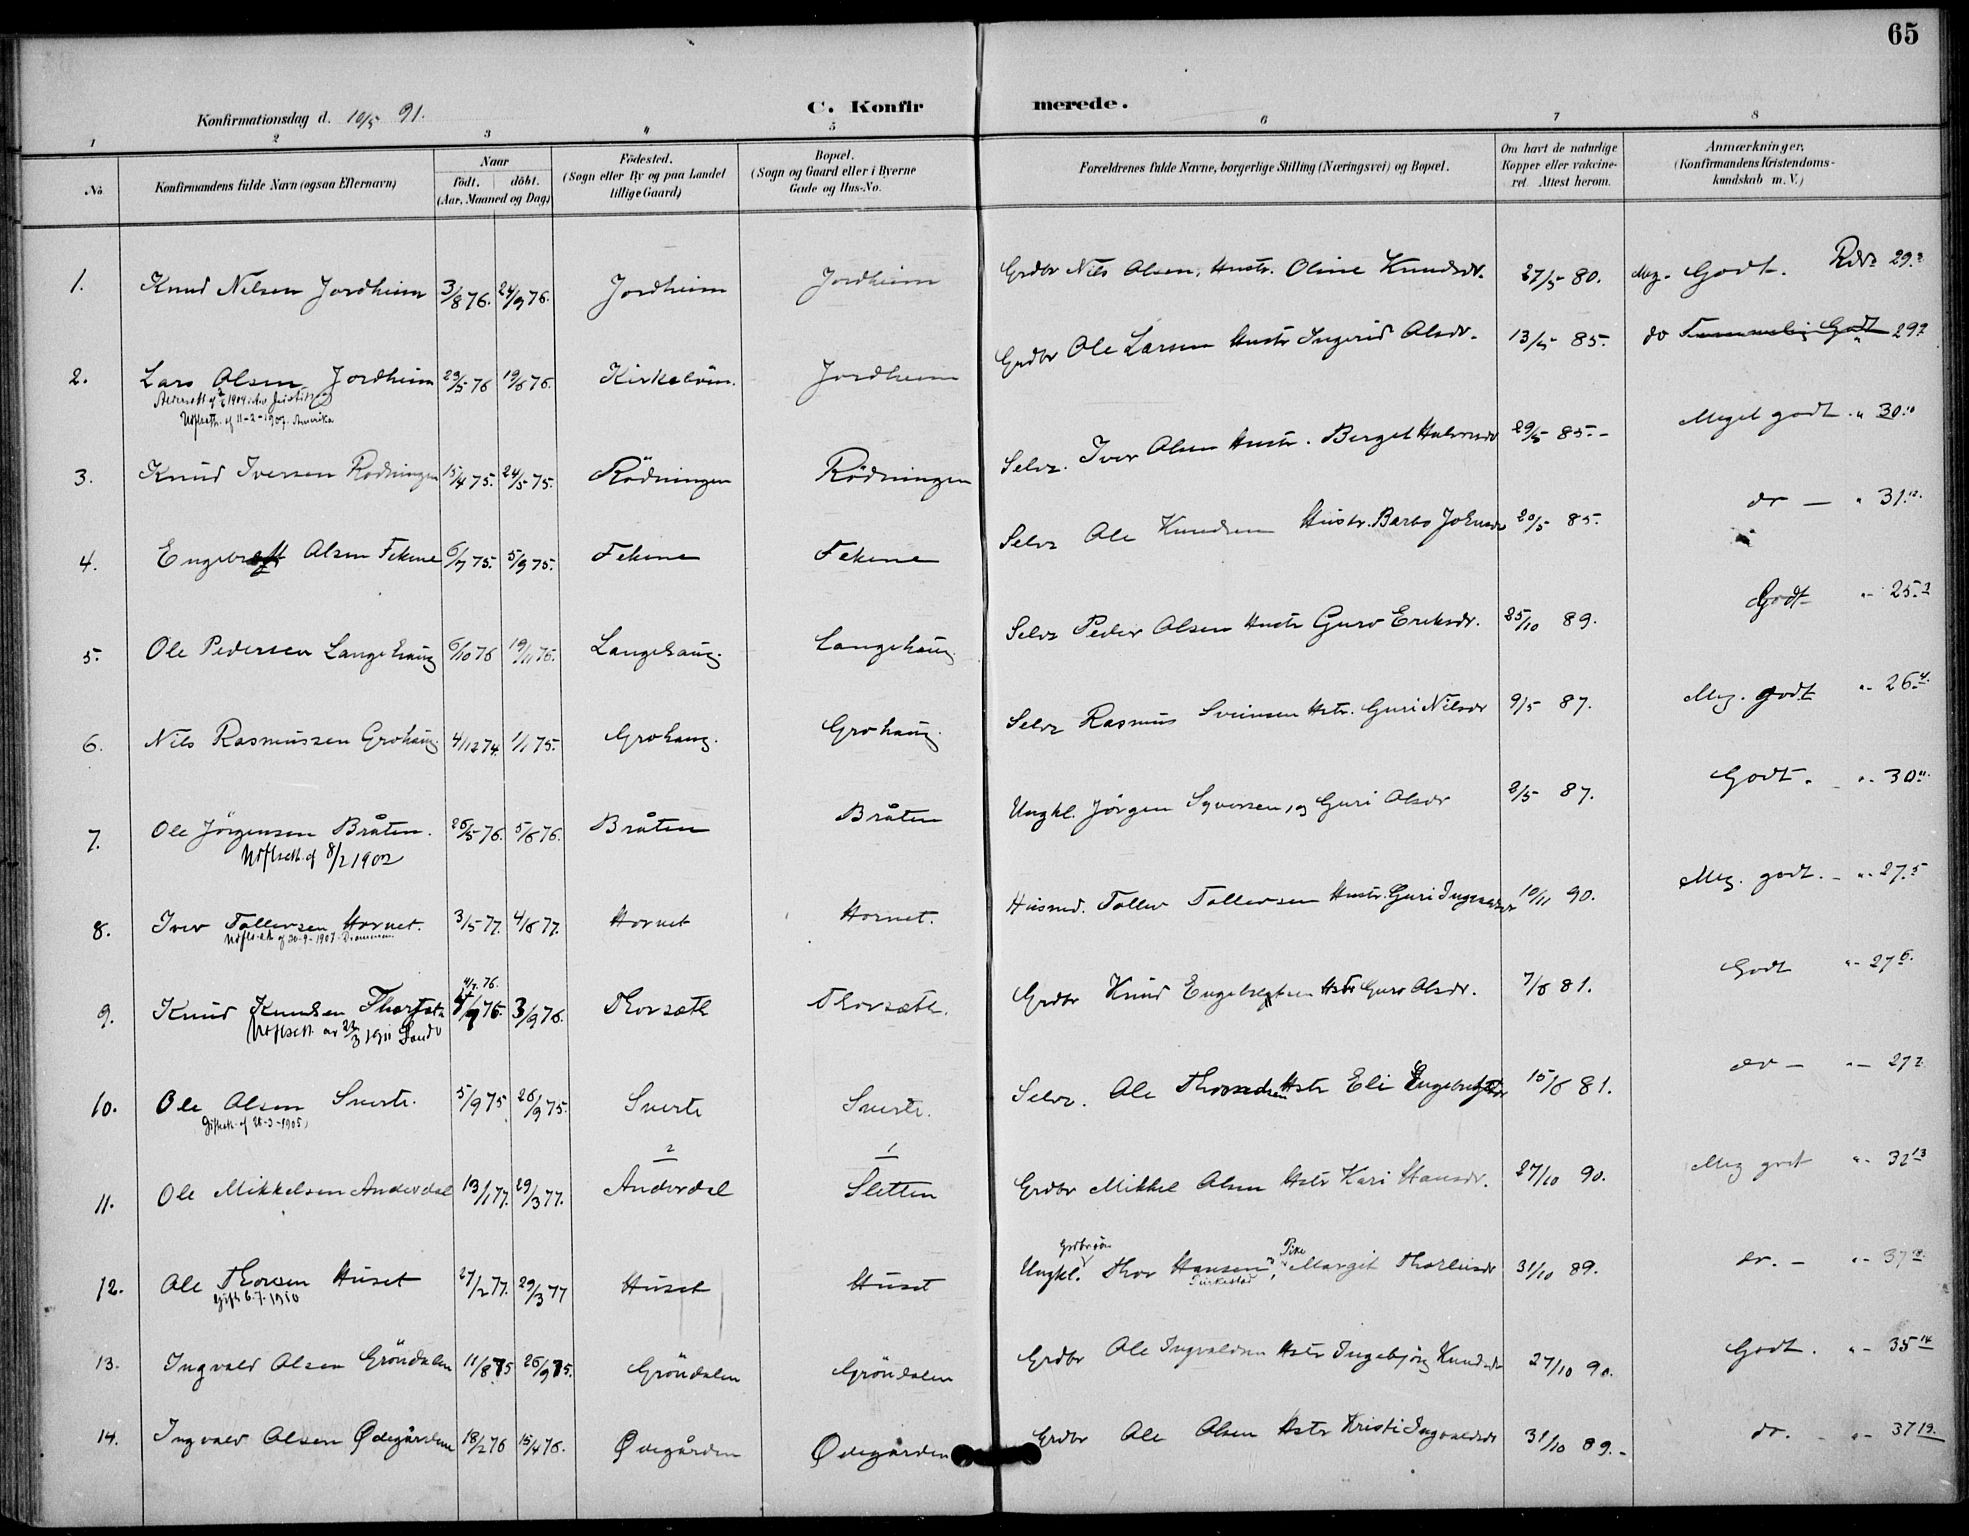 65
C. Konfirmerede.
Konfirmationsdag d. 10/5 91.
1 2 3 4 5 6 7 8
No Konfirmandens fulde Navn (ogsaa Efternavn) Naar födt. döbt. (Aar, Maaned og Dag) Födested. (Sogn eller By og paa Landet tillige Gaard) Bopæl. (Sogn og Gaard eller i Byerne Gade og Hus-No. Forældrenes fulde Navne, borgerlige Stilling (Næringsvei) og Bopæl. Om havt de naturlige Kopper eller vakcineret. Attest herom. Anmærkninger, (Konfirmandens Kristendomskundskab m. V.)
1. Knud Nilsen Jordheim 3/8 76. 24/9 76. Jordheim Jordheim Grdbr Nils Olsen, Hustr. Oline Knudsdr. 27/5 80. Meg. Godt. 29.
2. Lars Olsen Jordheim 29/5 76 19/6 76. Jordheim Grdbr Ole Larsen Hustr Ingerid Olsdr. 13/5 85. do Temmelig Godt 29
Utflatt. af 11-2-1907. Amerika
3. Knud Iversen Rödningen 15/4 75. 24/5 75. Rödningen Rödningen Selve. Iver Olsen Hustr. Berget Halvorsdr 29/5 85.- Meget godt " 30.
4. Engebret Olsen Fekene 6/7 75. 5/9 75. Fekene Fekene Selve Ole Knudsen Hustr. Barbo Johnsdr 20/5 85. do — " 31.
5. Ole Pedersen Langehaug 6/10 76 19/11 76. Langehaug. Langehaug. Selve Peder Olsen Hustr Guro Eriksdr. 25/10 89. Godt " 25.
6. Nils Rasmussen Grohaug 4/12 74. 1/1 75. Grohaug. Grohaug. Selve Rasmus Sveinsen Hstr. Guri Nilsdr 9/5 87. Meg. godt " 26.4.
7. Ole Jörgensen Bråten. 26/5 76. 5/6 76. Bråten Bråten Ungkl. Jörgen Syversen, og Guri Olsdr 2/5 87. Godt. " 30
Utflatt. af 8/2 1902
8. Iver Tollevsen Hornet. 3/5 77. 4/6 77. Hornet Hornet. Husmd. Tollev Tollevsen Hustr. Guri 10/11 90. Meg. godt. — " 27.5
Utfl. att. af 20-9-1907. Drammen
9. Knud Knudsen 4/7 76. 3/9 76. Thorsæth Thorsæth. Grdbr Knud Engebretsen Hstr Guro Olsdr. 7/6 81. Godt " 27 6.
Utflatt av 22/3 1911
10. Ole Olsen Sverte. 5/9 75 26/9 75. Sverte Sverte. Selve. Ole Hstr Eli Engebretsdr 15/6 81. do — " 27
Giftatt. af 28-3-1905
11. Ole Mikkelsen Anderdal 13/1 77. 29/3 77. 2 Anderdal 1 Sletten Grdbr Mikkel Olsen Hstr Kari Hansdr. 27/10 90. Meg godt " 32 13
12. Ole Thorsen Huset 27/2 77. 29/3 77 Huset Huset Ungkl. Thor Hansen og Pike Margit 31/10 89. do. — " 37
Gift 6.7.1910
13. Ingvald Olsen Gröndalen 11/8 75 26/9 75. Gröndalen Gröndalen Grdbr Ole Ingvaldsen Hstr Ingebjörg Knudsdr 27/10 90. Godt. " 35 14
14. Ingvald Olsen Ødegården 18/2 76 15/4 76. Ødegården Ødegården Grdbr Ole Olsen Hstr Kristi Ingvaldsdr 31/10 89.- do. — " 37 19.